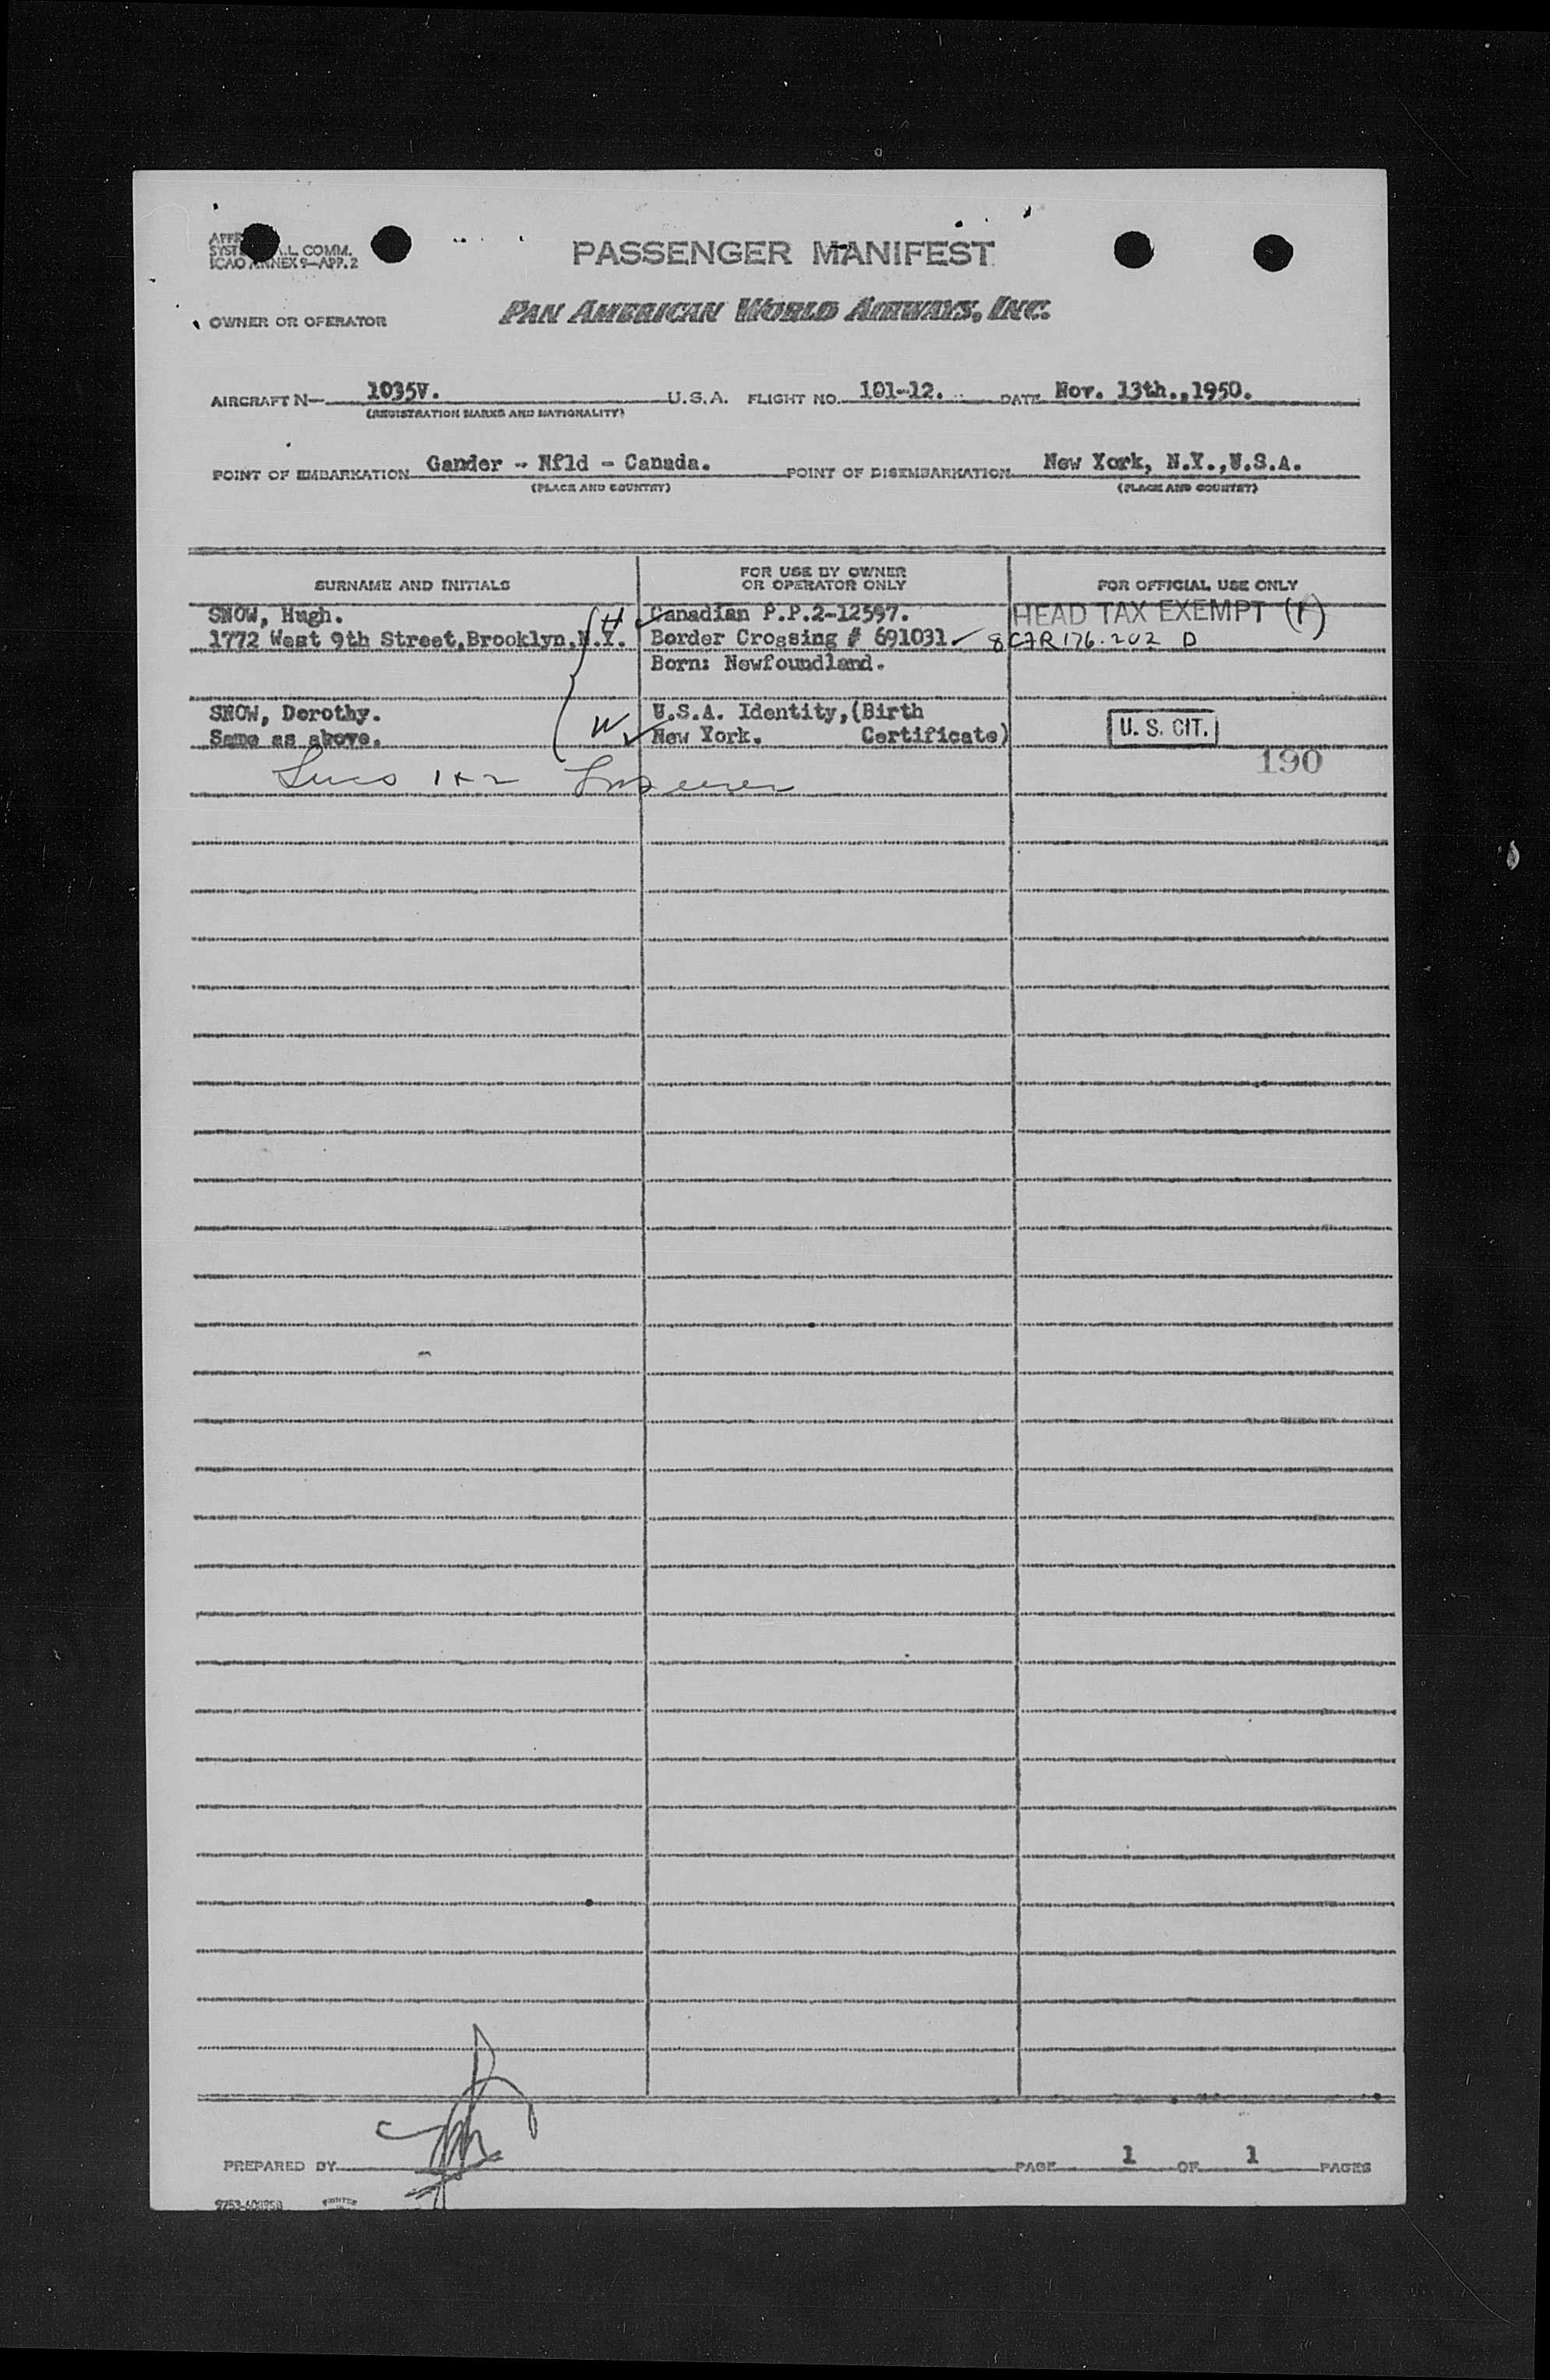 PASSENGER MANIFEST
L COMM.
ICAO ANNEX 9—APP. 2
OWNER OR OPERATOR
PAN AMERICAN WORLD AIRWAYS, INC.
AIRCRAFT N— 1035V. U.S.A. FLIGHT NO. 101-12. DATE Nov. 13th.,1950.
(REGISTRATION MARKS AND NATIONALITY)
POINT OF EMBARKATION Gander - Nfld - Canada. POINT OF DISEMBARKATION New York, N.Y.,U.S.A.
(PLACE AND COUNTRY) (PLACE AND COUNTRY)
SURNAME AND INITIALS
FOR USE BY OWNER
OR OPERATOR ONLY
FOR OFFICIAL USE ONLY
SNOW, Hugh. H Canadian P.P.2-12597. HEAD TAX EXEMPT (1)
1772 West 9th Street,Brooklyn,N.Y. Border Crossing # 691031 8 CFR 176.202 D
Born: Newfoundland.
SNOW, Dorothy. W U.S.A. Identity,(Birth U. S. CIT.
Same as above. New York. Certificate)
190
1 & 2
PREPARED BY PAGE 1 OF 1 PAGES
PRINTED